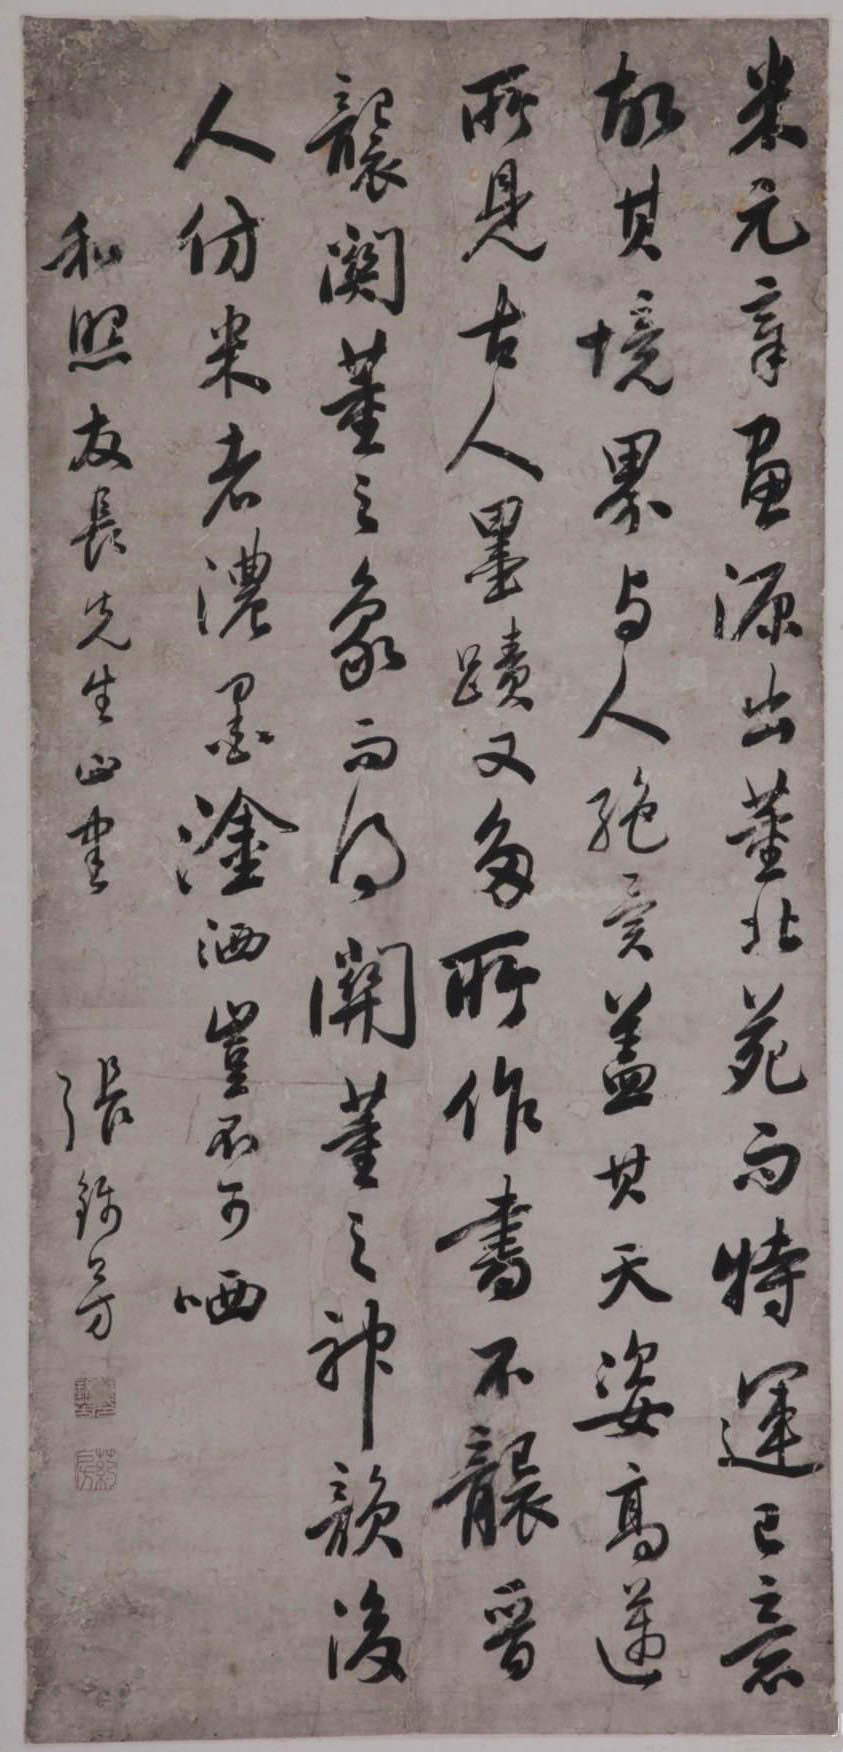 米元章畫源出董北苑而特運己意
故其境界与人絶異蓋其天姿高邁
所見古人墨蹟又多所作書不襲晉
襲関董之象而得關董之神韻後
人仿米老濃墨塗洒豈不可哂
和照友長先生正書 張錦芳